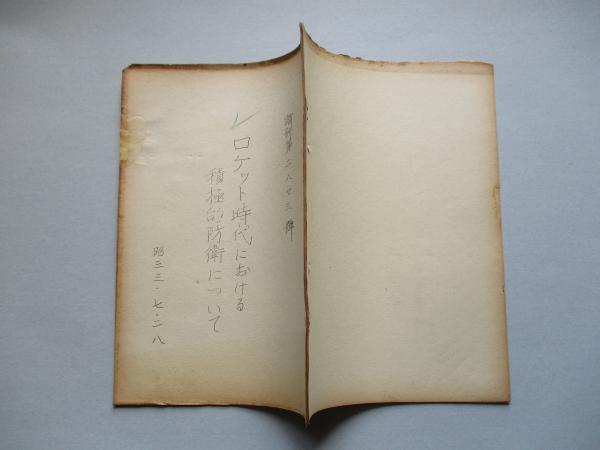 第二八七三號
ロケット時代における
積極的防衛について
昭三三・七・二八